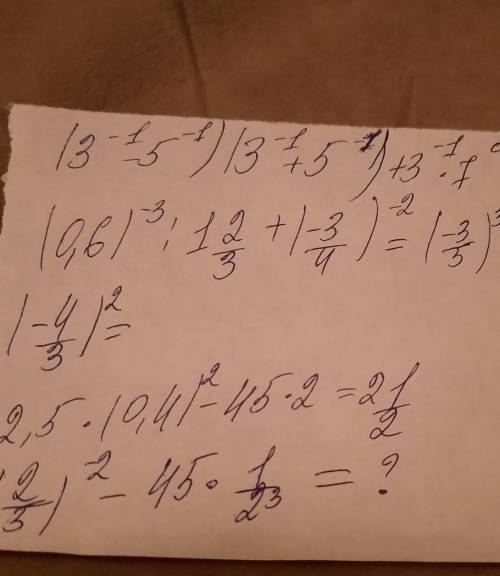 (3⁻¹-5⁻¹)(3⁻¹+5⁻¹)+3⁻¹·1
(0,6)⁻³:1 2/3+(-3/4)⁻²=(-3/5)³
(-4/3)²=
2,5·(0,4)²-45·2=2 1/2
(2/5)⁻²-45·1/2³=?